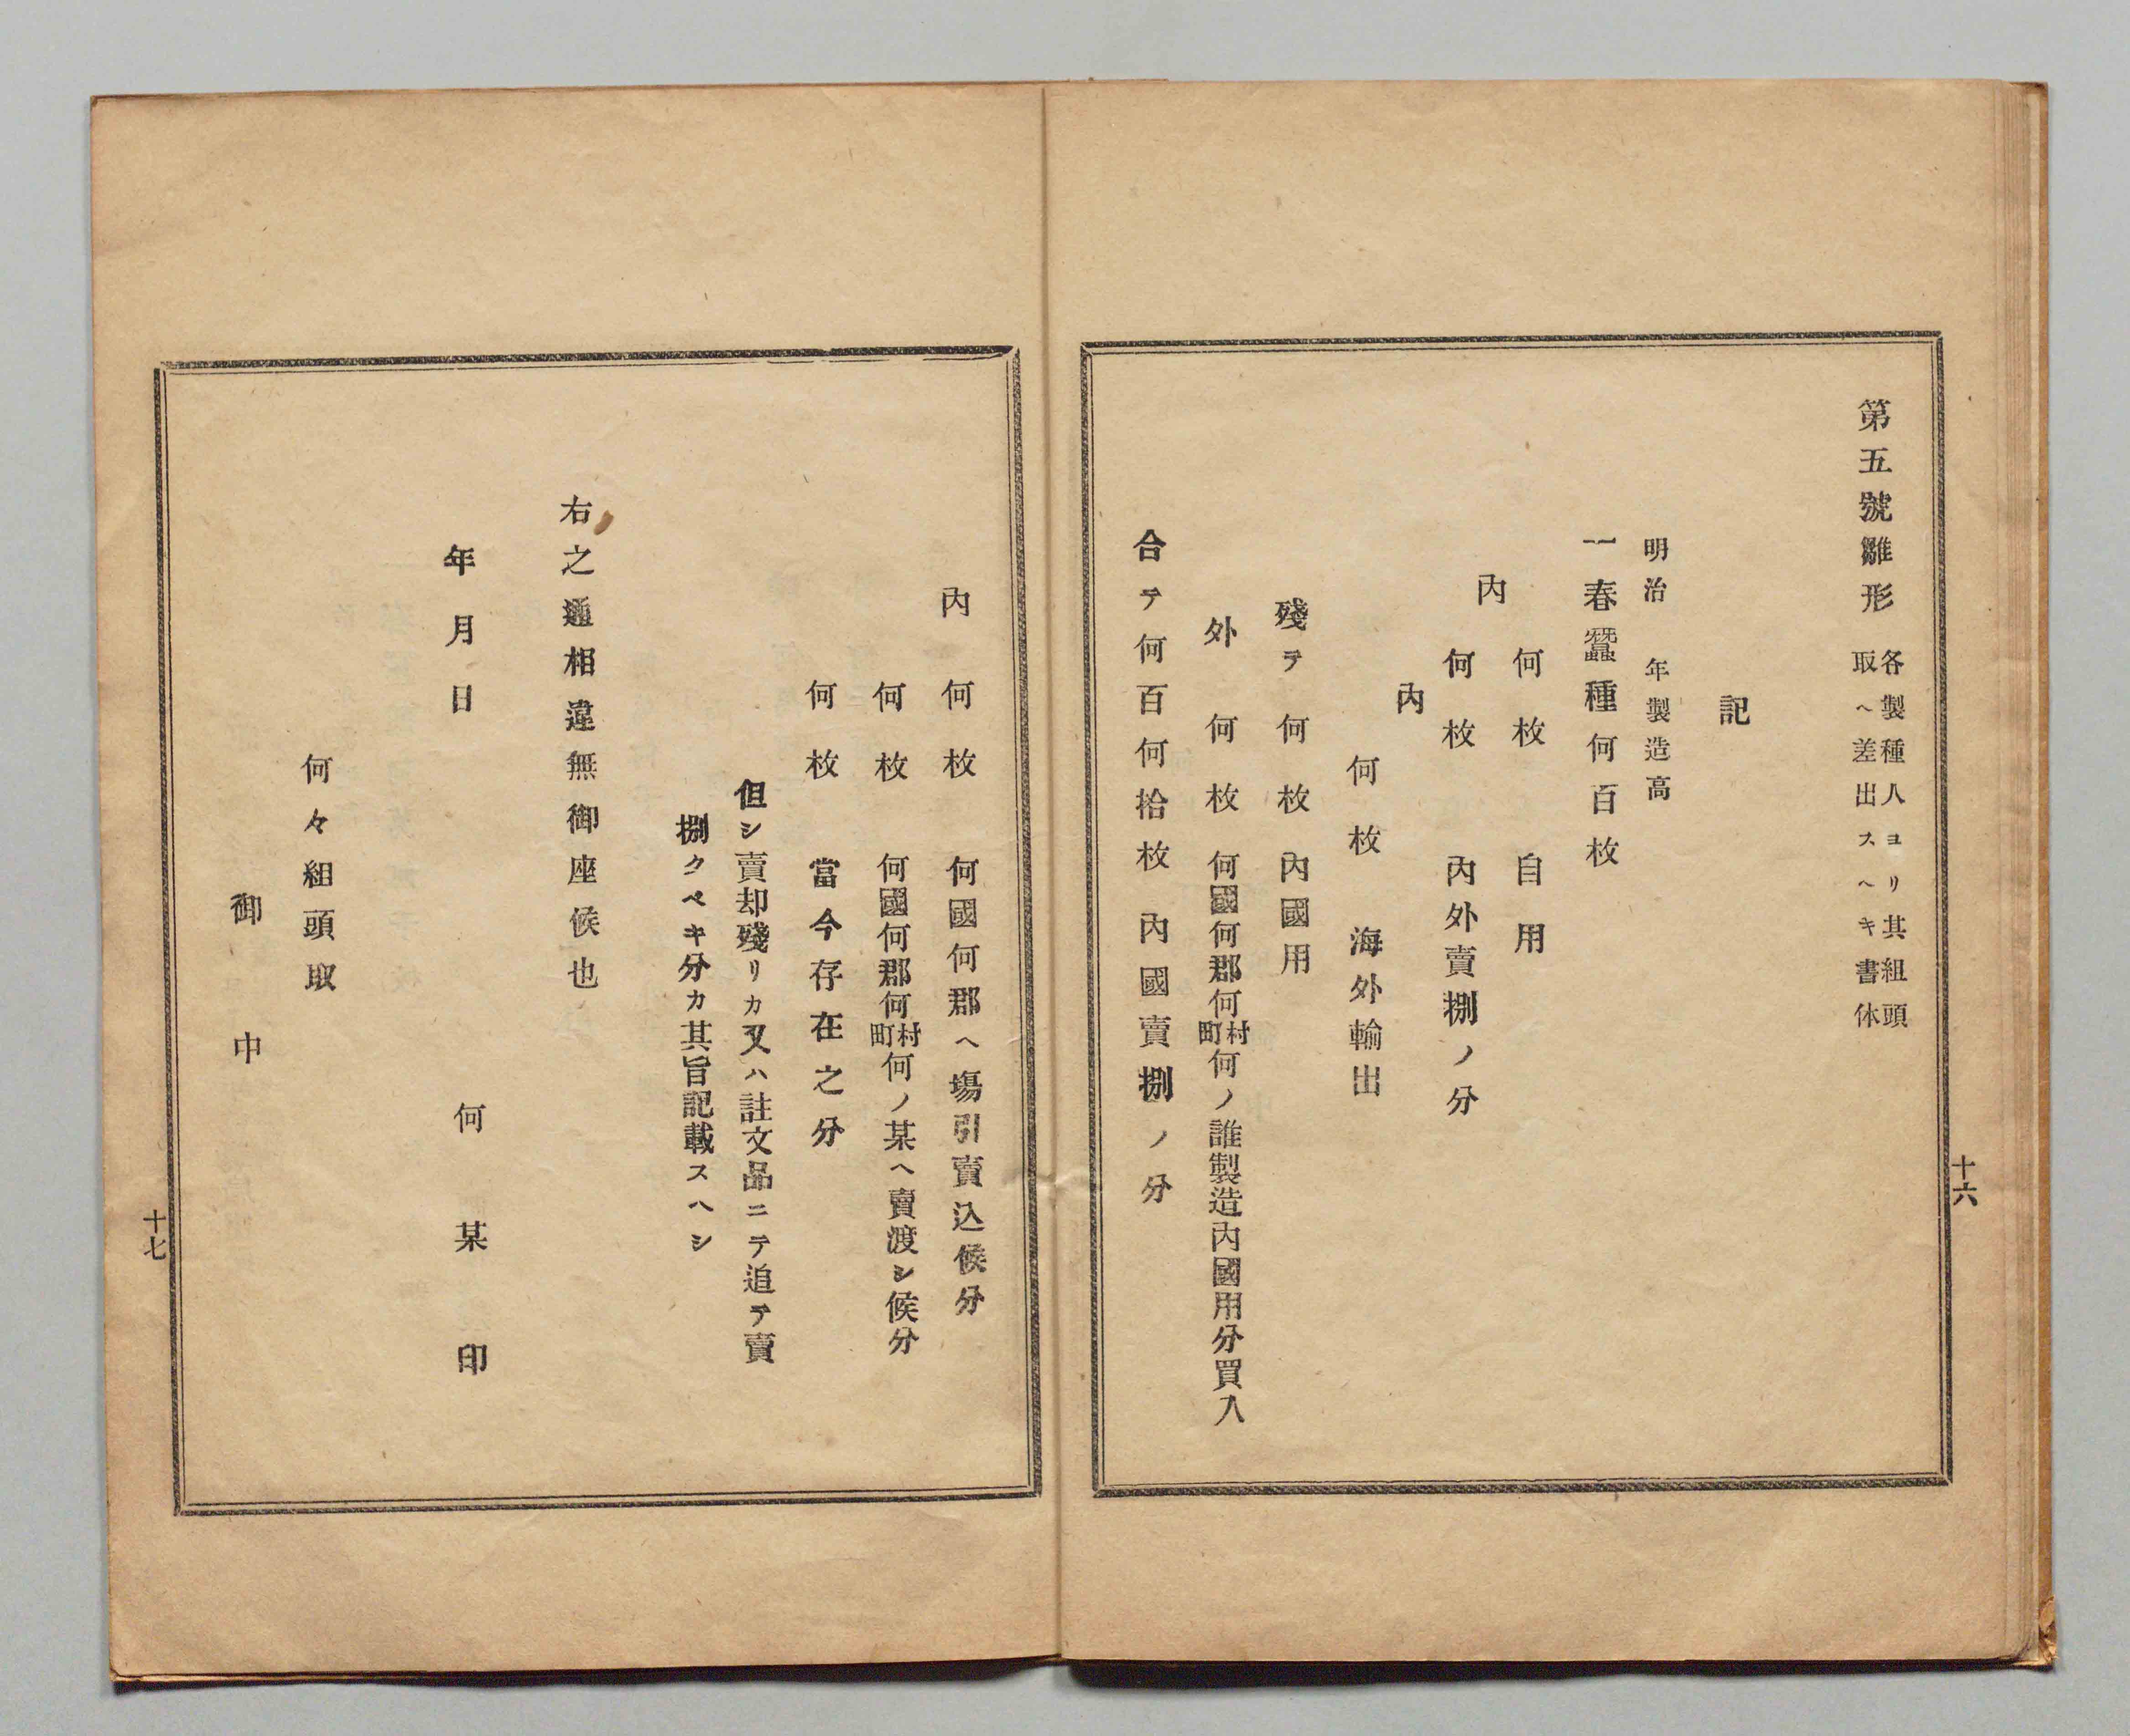 第五號雛形 各製種人ヨリ其組頭
取ヘ差出スヘキ書体
記
明治　年製造高
一春蠶種何百枚
內
何枚　自用
何枚　內外賣捌ノ分
內
何枚　海外輸出
殘テ何枚　內國用
外　何枚　何國何郡何村町何ノ誰製造內國用分買入
合テ何百何拾枚　內國賣捌ノ分
十六
內　何枚　何國何郡ヘ塲引賣込候分
何枚　何國何郡何村町何ノ某ヘ賣渡シ候分
何枚　當今存在之分
但シ賣却殘リカ又ハ註文品ニテ追テ賣
捌クベキ分カ其旨記載スヘシ
右之通相違無御座候也
年月日
何某印
何々組頭取
御中
十七